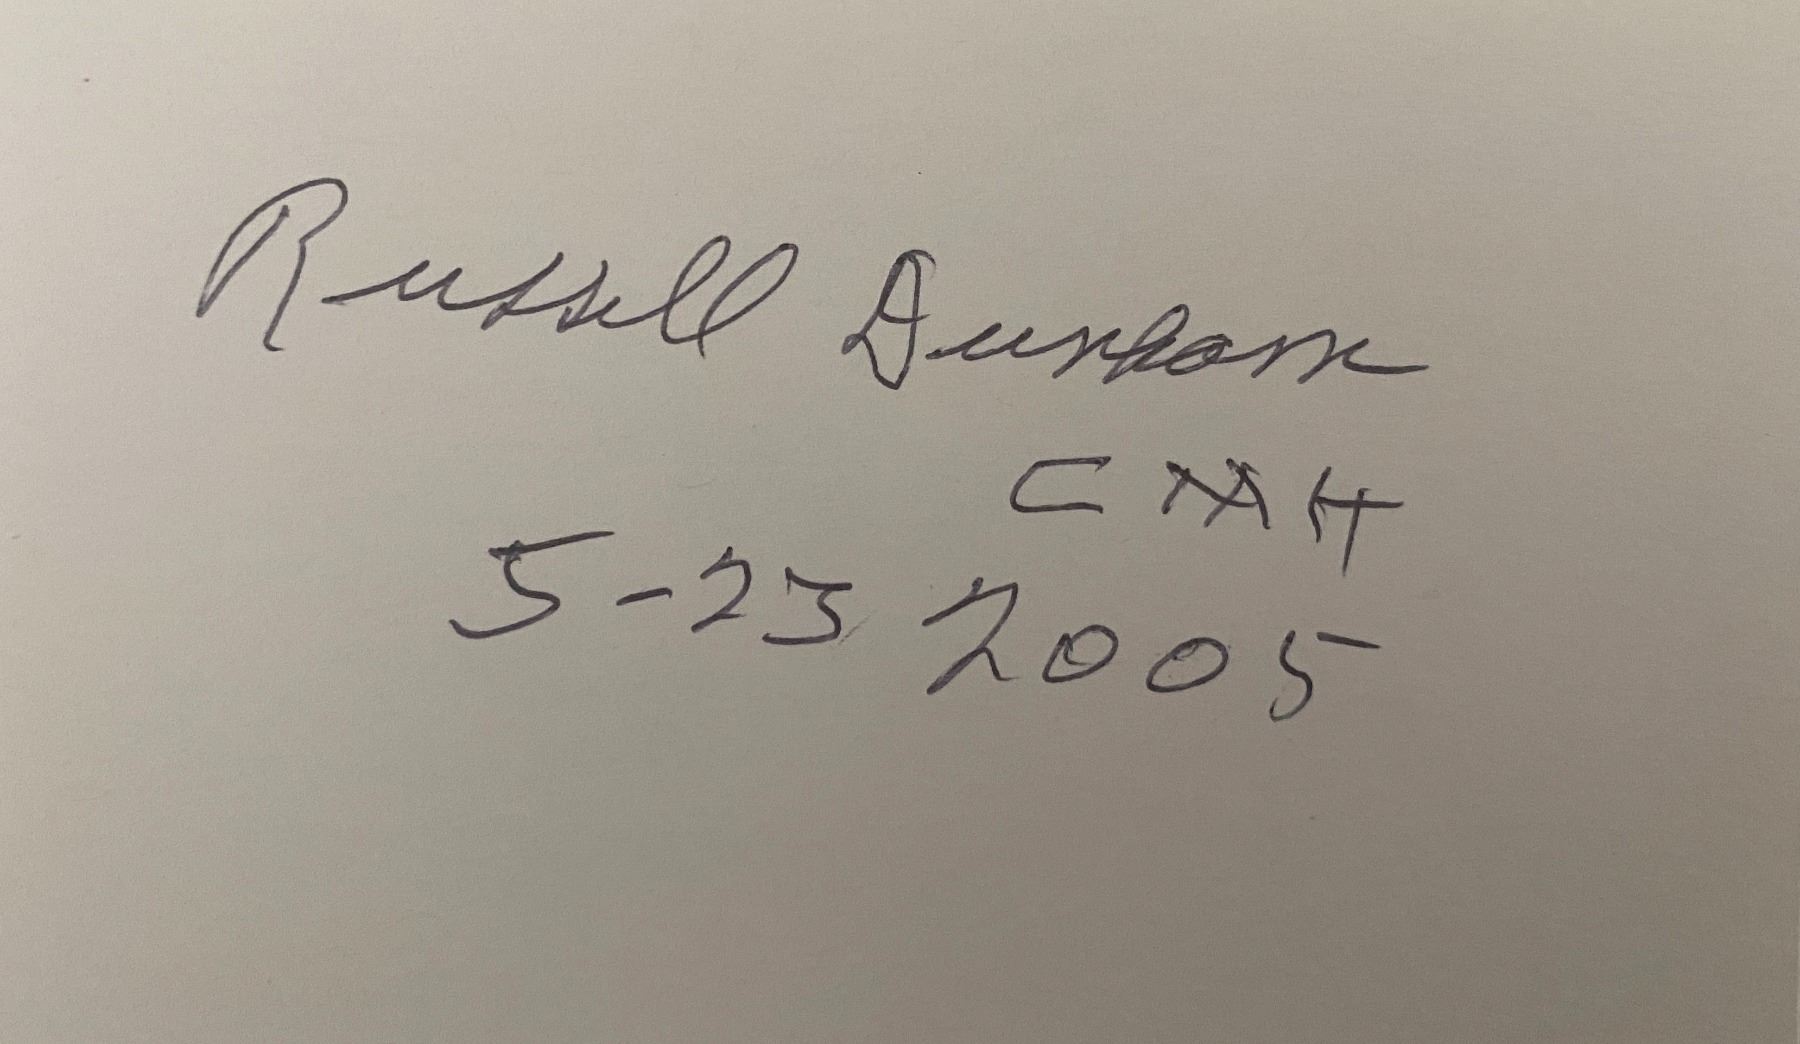 Russell Dunham
CMH
5-23 2005